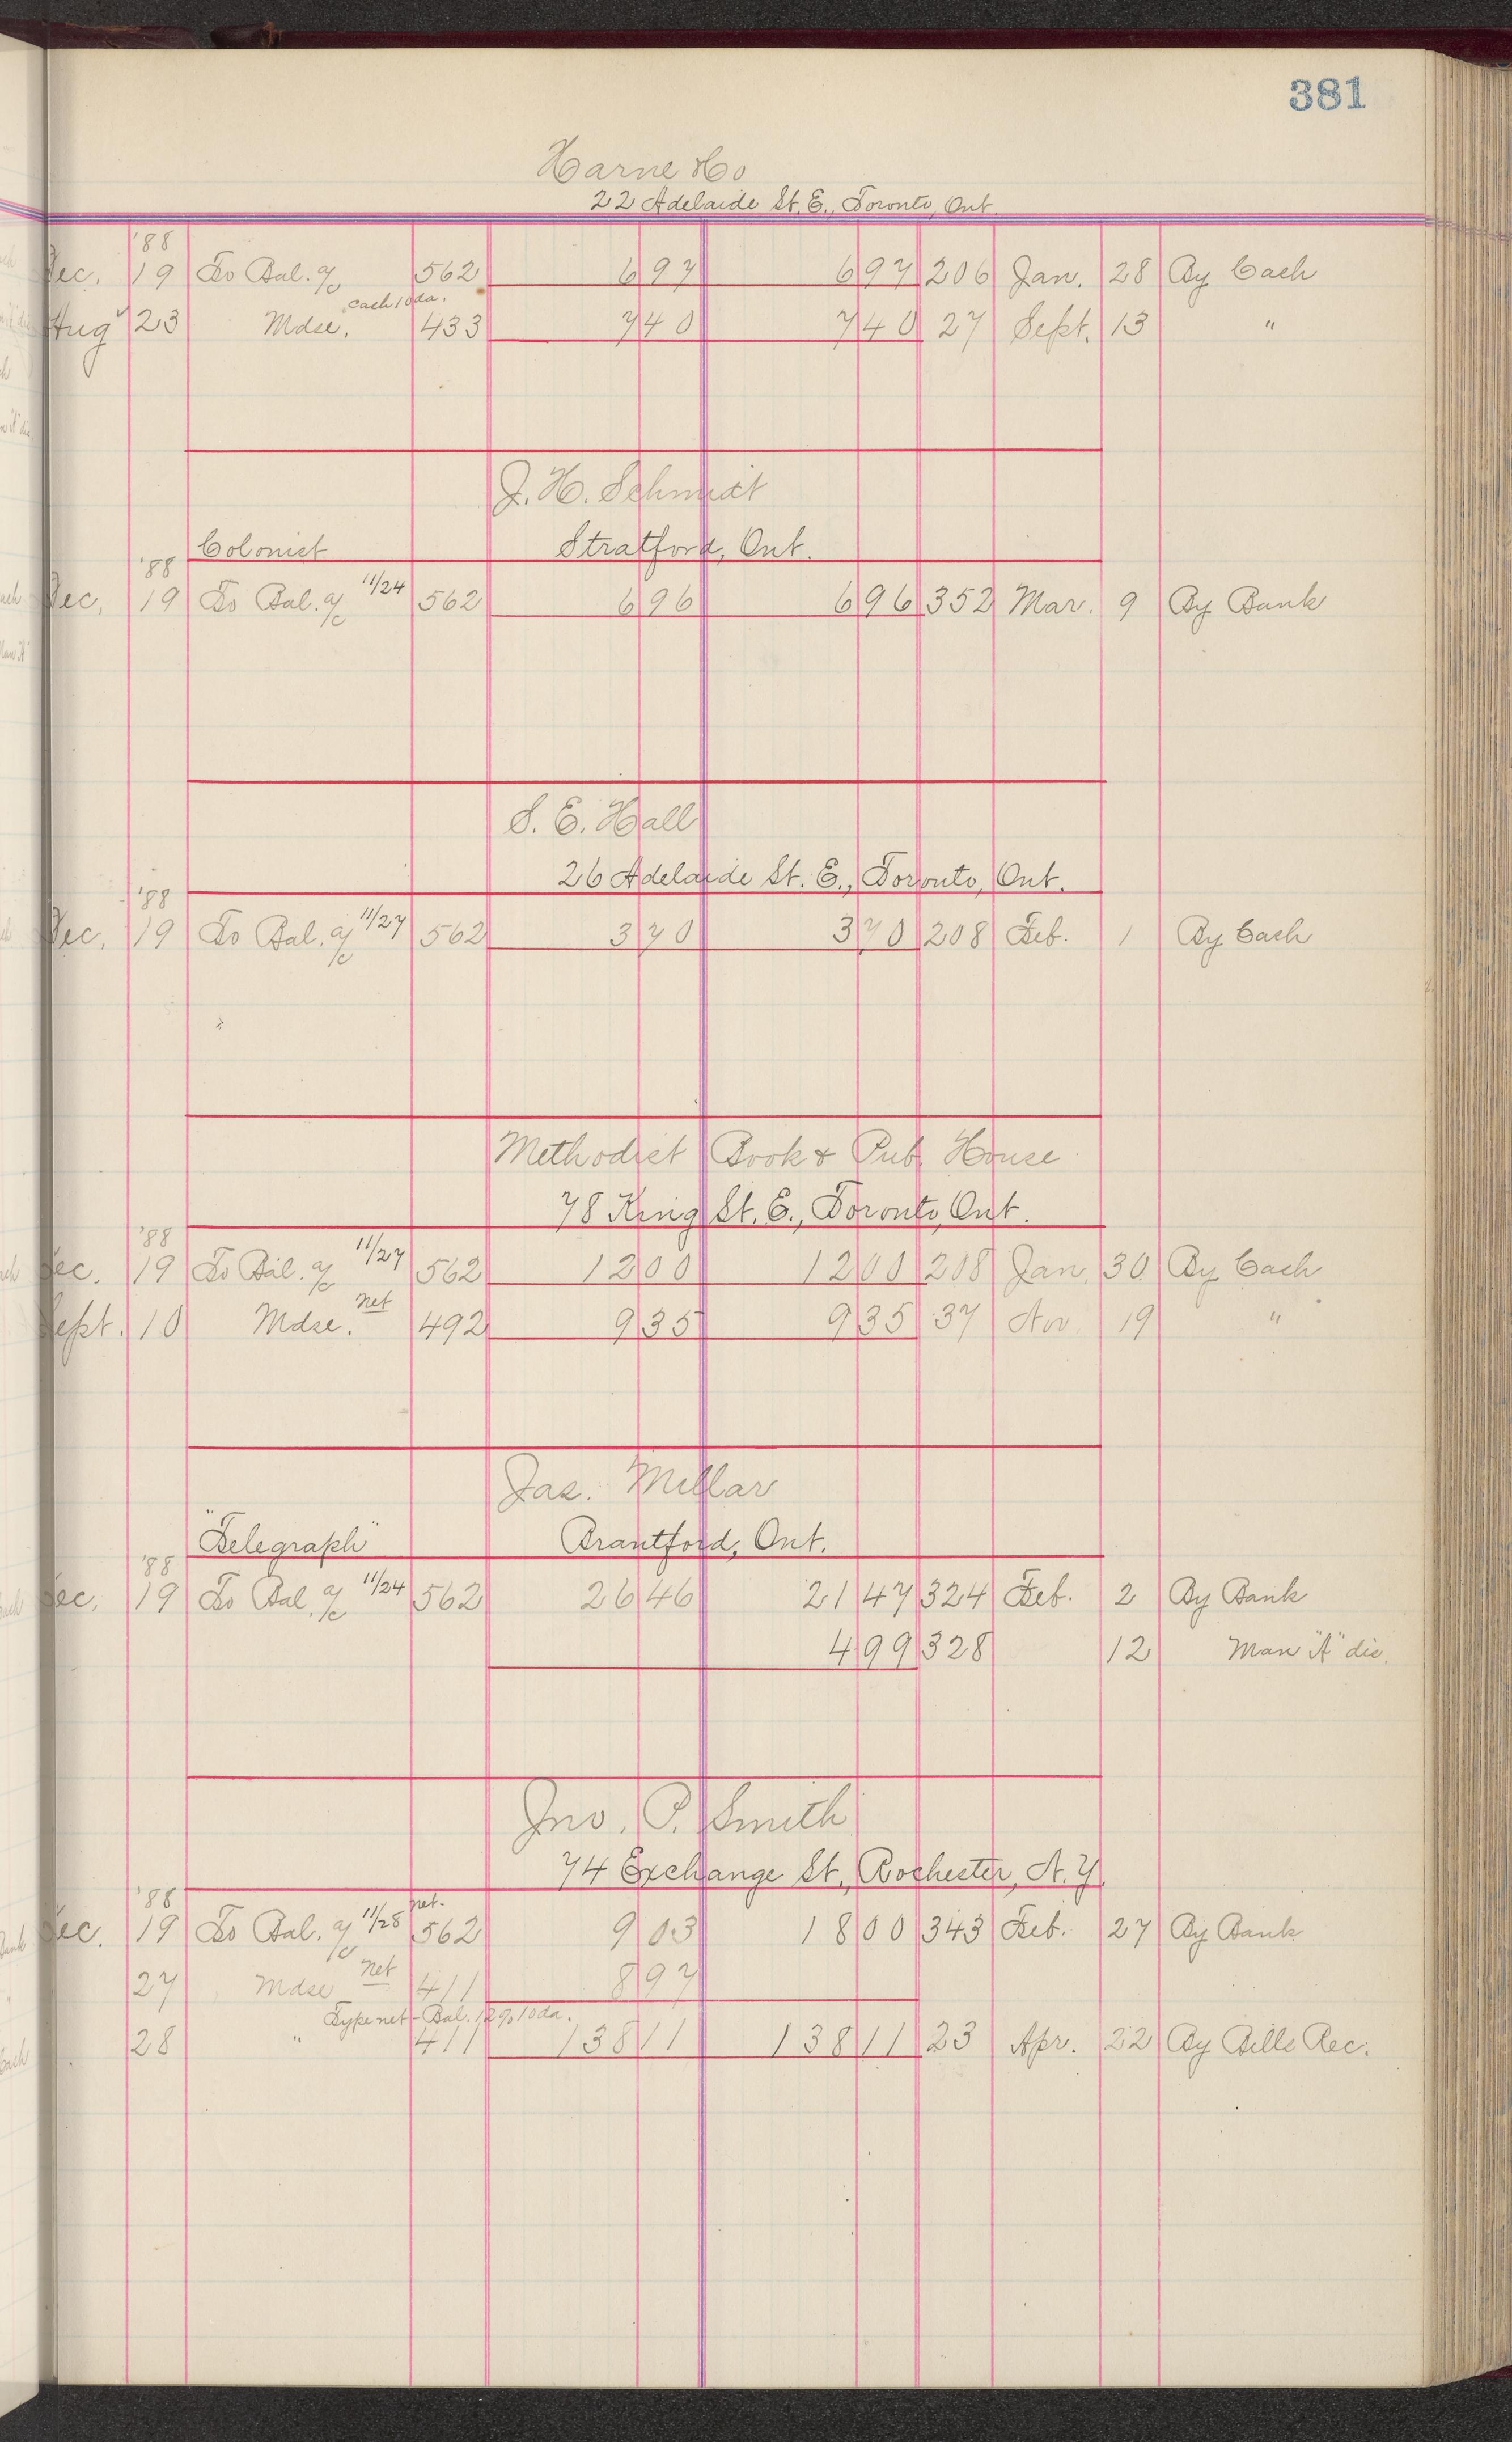 381
Harne & Co
22 Adelaide St. E., Toronto, Ont.
'88
Dec. 19 To Bal. a/c 562 6 97 6 97 206 Jan. 28 By Cash
cash 10 da.
Aug 23 Mdse. 433 7 40 7 40 27 Sept. 13 "
J. H. Schmidt
Colonist Stratford, Ont.
'88
Dec. 19 To Bal. a/c 11/24 562 6 96 6 96 352 Mar. 9 By Bank
S. E. Hall
26 Adelaide St. E., Toronto, Ont.
'88
Dec. 19 To Bal. a/c 11/27 562 3 70 3 70 208 Feb. 1 By Cash
Methodist Book & Pub. House
78 King St. E., Toronto, Ont.
'88
Dec. 19 To Bal. a/c 11/27 562 12 00 12 00 208 Jan. 30 By Cash
Sept. 10 Mdse. net 492 9 35 9 35 37 Nov. 19 "
Jas. Millar
"Telegraph" Brantford, Ont.
'88
Dec. 19 To Bal. a/c 11/24 562 26 46 21 47 324 Feb. 2 By Bank
4 99 328 12 Man "A" dis.
Jno. P. Smith
74 Exchange St., Rochester, N.Y.
'88
Dec. 19 To Bal. a/c 11/28 net. 562 9 03 18 00 343 Feb. 27 By Bank
27 Mdse net 411 8 97
Type net - Bal. 2% 10 da.
28 " 411 138 11 138 11 23 Apr. 22 By Bills Rec.